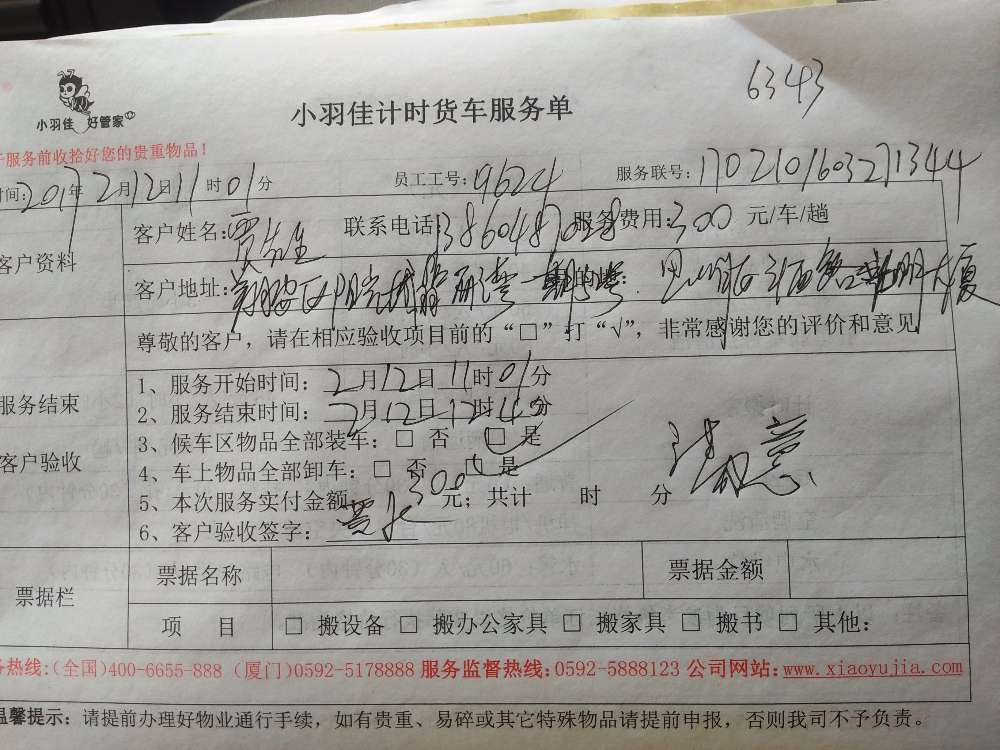 6343
小羽佳 好管家
小羽佳计时货车服务单
服务前收拾好您的贵重物品！
时间：2017年2月12日11时01分 员工工号：9624 服务联号：1702101603271344
客户资料
客户姓名：贾先生 联系电话 服务费用：300 元/车/趟
客户地址：翔安区
尊敬的客户，请在相应验收项目前的“□”打“√”，非常感谢您的评价和意见
服务结束
客户验收
1、服务开始时间：2月12日11时01分
2、服务结束时间：2月12日12时 分
3、候车区物品全部装车：□ 否 □ 是
4、车上物品全部卸车：□ 否 □ 是
满意
5、本次服务实付金额 300 元；共计 时 分
6、客户验收签字：贾
票据栏
票据名称 票据金额
项 目 □ 搬设备 □ 搬办公家具 □ 搬家具 □ 搬书 □ 其他：
务热线：(全国)400-6655-888 (厦门)0592-5178888 服务监督热线：0592-5888123 公司网站：www.xiaoyujia.com
温馨提示：请提前办理好物业通行手续，如有贵重、易碎或其它特殊物品请提前申报，否则我司不予负责。